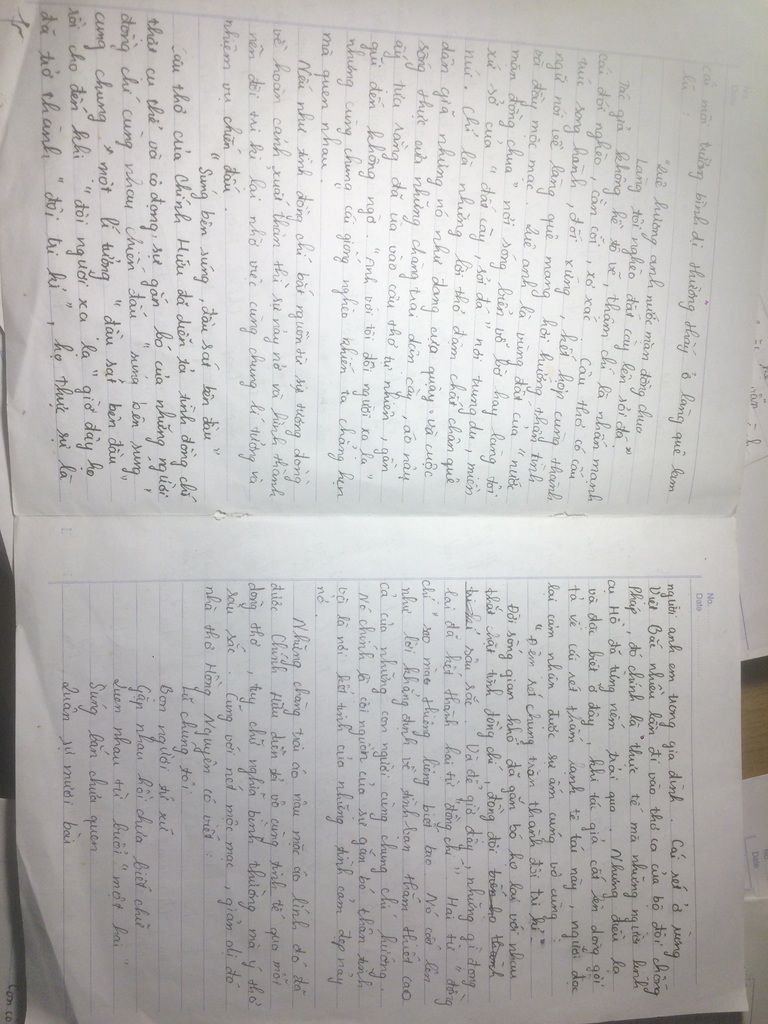 cái môi trường bình dị thường thấy ở làng quê Việt
là :
"Quê hương anh nước mặn đồng chua
Làng tôi nghèo đất cày lên sỏi đá"
Tác giả không hề tô vẽ, thậm chí là nhấn mạnh
cái đói nghèo, cằn cỗi, xơ xác. Câu thơ có cấu
trúc song hành, đối xứng, kết hợp cùng thành
ngữ nói về làng quê mang hơi hướng thấm tình
và đầy mộc mạc. Quê anh là vùng đất của "nước
mặn đồng chua" nơi sông biển vỗ bờ hay làng tôi
xứ sở của "đất cày, sỏi đá" nơi trung du, miền
núi. Chỉ là những lời thơ đậm chất chân quê
dân giã nhưng nó như đang cựa quậy và cuộc
sống thực của những chàng trai dân cày, áo nâu
ấy tựa rằng đã ùa vào câu thơ tự nhiên, gần
gũi đến không ngờ. "Anh với tôi đôi người xa lạ"
nhưng cùng chung cái giống nghèo khiến ta chẳng hẹn
mà quen nhau.
Nếu như tình đồng chí bắt nguồn từ sự tương đồng
về hoàn cảnh xuất thân thì sự nảy nở và hình thành
nên đôi tri kỉ lại nhờ việc cùng chung lí tưởng và
nhiệm vụ chiến đấu.
"Súng bên súng, đầu sát bên đầu"
Câu thơ của Chính Hữu đã diễn tả tình đồng chí
thật cụ thể và cô đọng, sự gắn bó của những người
đồng chí cùng nhau chiến đấu "súng bên súng",
cùng chung một lí tưởng "đầu sát bên đầu"
rồi cho đến khi "đôi người xa lạ" giờ đây họ
đã trở thành "đôi tri kỉ", họ thực sự là
No.
Date
người anh em trong gia đình. Cái rét ở rừng
Việt Bắc nhiều lần đi vào thơ ca của bộ đội chống
Pháp, đó chính là thực tế mà những người lính
cụ Hồ đã từng nếm trải qua. Nhưng điều lạ
và đặc biệt ở đây, khi tác giả cất lên dòng gợi
tả về cái rét thấm lạnh tê tái này, người đọc
lại cảm nhận được sự ấm cúng vô cùng :
"Đêm rét chung chăn thành đôi tri kỉ"
Đời sống gian khổ đã gắn bó họ lại với nhau
thắt chặt tình đồng chí, đồng đội
sâu sắc. Và để giờ đây, những gì đọng
lại đã kết thành hai từ "đồng chí". Hai từ "đồng
chí" sao mà thiêng liêng biết bao. Nó cất lên
như lời khẳng định về tình bạn thắm thiết cao
cả của những con người cùng chung chí hướng.
Nó chính là cội nguồn của sự gắn bó thân tình
và là nơi kết tinh của những tình cảm đẹp này
nở.
Những chàng trai áo nâu mặc áo lính đó đã
được Chính Hữu diễn tả vô cùng tinh tế qua mỗi
dòng thơ, tuy chữ nghĩa bình thường mà ý thơ
sâu sắc. Cũng với nét mộc mạc, giản dị đó
nhà thơ Hồng Nguyên có viết :
Lũ chúng tôi
Bọn người tứ xứ
Gặp nhau hồi chưa biết chữ
Quen nhau từ buổi "một hai"
Súng bắn chưa quen
Quân sự mươi bài